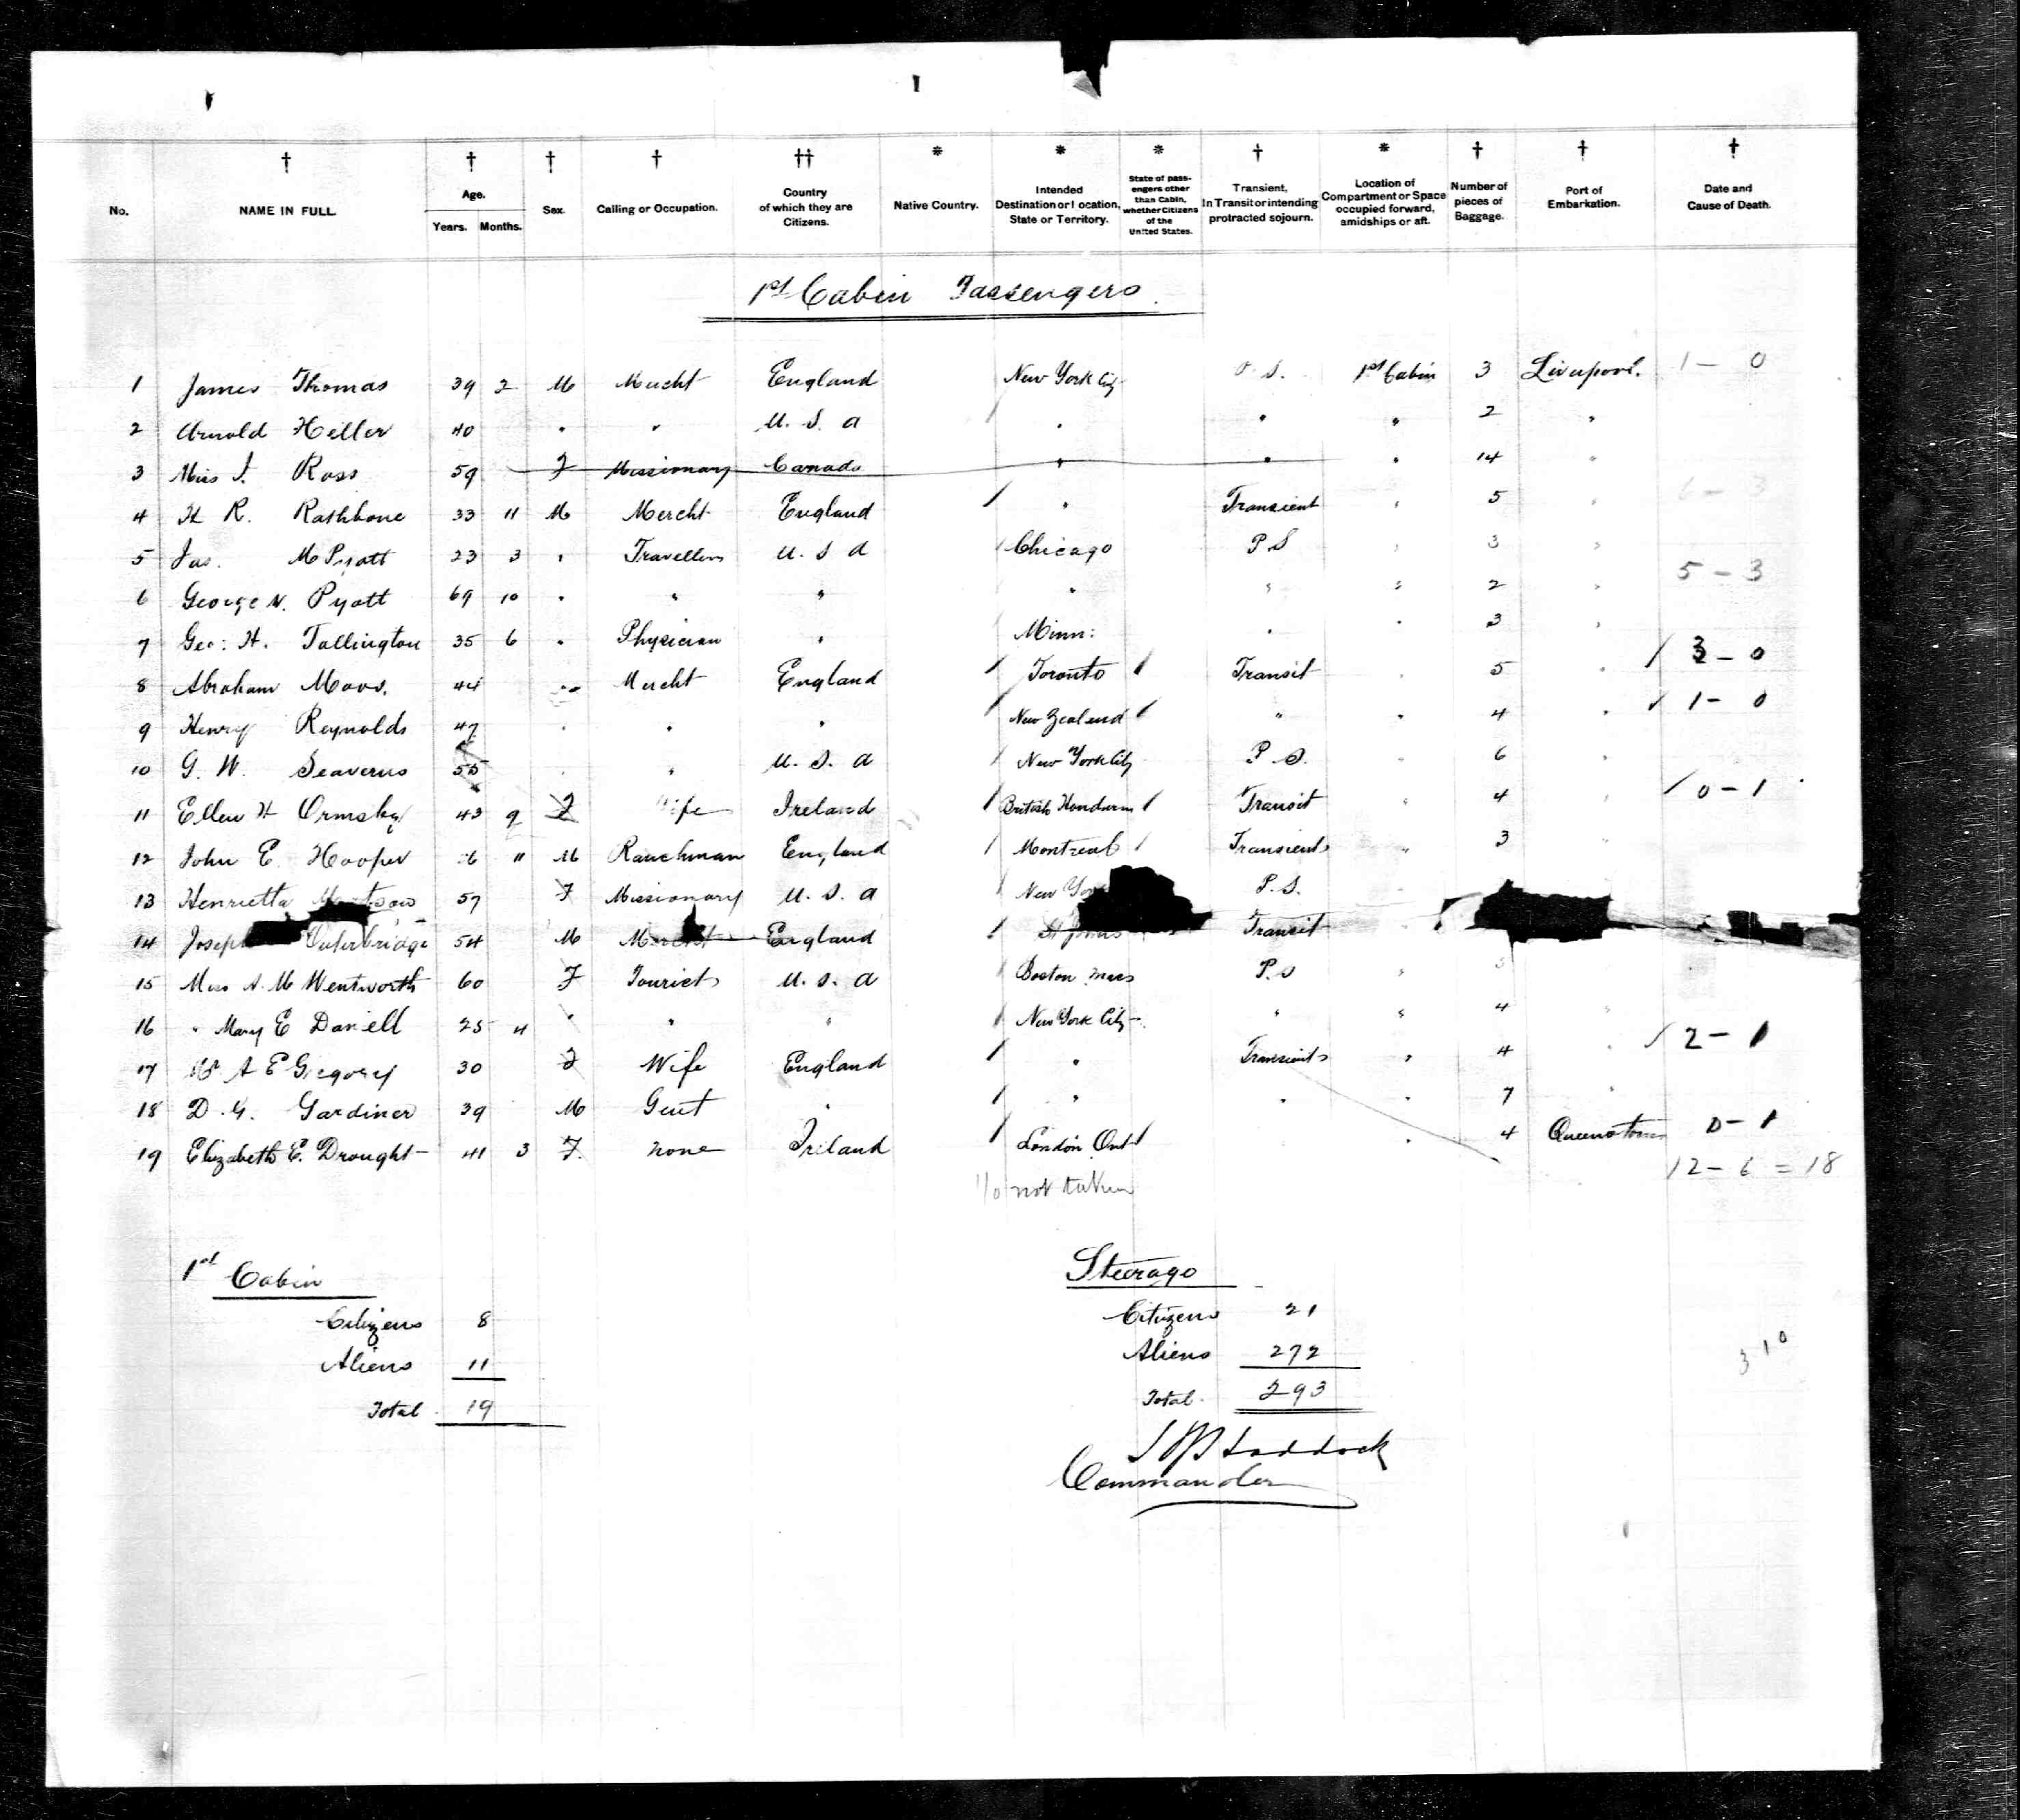 I
No. † NAME IN FULL. † Age. Years. Months. † Sex. † Calling or Occupation. †† Country of which they are Citizens. * Native Country. * Intended Destination or Location, State or Territory. * State of passengers other than Cabin, whether Citizens of the United States. † Transient, In Transit or intending protracted sojourn. * Location of Compartment or Space occupied forward, amidships or aft. † Number of pieces of Baggage. † Port of Embarkation. † Date and Cause of Death.
1st Cabin Passengers
1 James Thomas 39 2 M Mercht England New York City 1st Cabin 3 Liverpool. 1 - 0
2 Arnold Heller 40 " " U. S. A / " " " 2 "
3 Miss J. Ross 59 F Missionary Canada " " " 14 "
4 H R. Rathbone 33 11 M Mercht England / " Transient " 5 "
5 Jas. McPyatt 23 3 " Travellers U. S A / Chicago P. S " 3 "
5 - 3
6 George N. Pyott 69 10 " " " " " " 2 "
7 Geo: H. Tallington 35 6 " Physician " Minn: " " 3 "
8 Abraham Moos. 44 " Mercht England / Toronto / Transit " 5 " / 3 - 0
9 Henry Reynolds 47 " " " / New Zealand / " " 4 " / 1 - 0
10 G. W. Seaverns 55 " " U. S. A / New York City P. S. " 6 "
11 Ellen H Ormsby 43 9 F Wife Ireland / British Honduras / Transit " 4 " / 0 - 1
12 John E. Hooper 11 M Ranchman England / Montreal / Transient " 3 "
13 Henrietta 57 F Missionary U. S. A / New York P. S. "
14 Joseph Outerbridge 54 M Mercht England / St Johns Transit
15 Miss A. M Wentworth 60 F Tourist U. S. A / Boston Mass P. S "
16 " Mary E Daniell 25 4 " " " / New York City " " 4 "
17 A E Gregory 30 F Wife England / " Transient " 4 " / 2 - 1
18 D. G. Gardiner 39 M Gent " / " " " 7 "
19 Elizabeth E. Drought 41 3 F. none Ireland / London Ont / " 4 Queenstown 0 - 1
not taken 12 - 6 = 18
1st Cabin
Citizens 8
Aliens 11
Total 19
Steerage
Citizens 21
Aliens 272
Total 293
310
Haddock
Commander